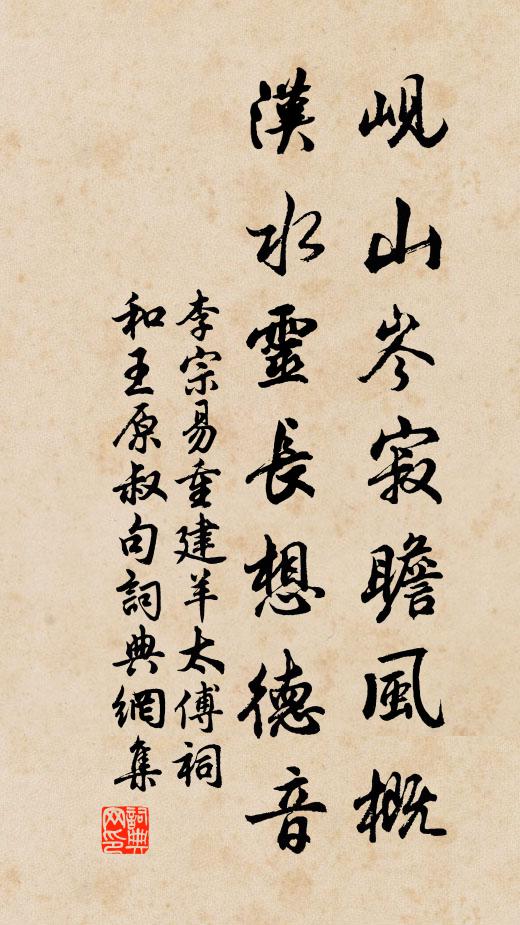 峴山岑寂瞻風概
漢水靈長想德音
李宗易重建羊太傅祠
和王原叔句詞典網集
詞典网印